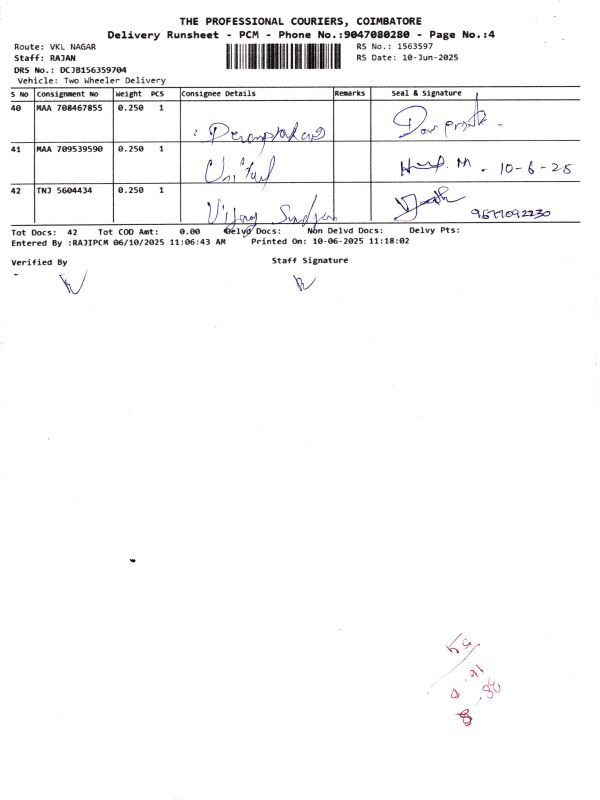 THE PROFESSIONAL COURIERS, COIMBATORE
Delivery Runsheet - PCM - Phone No.:9047080280 - Page No.:4
Route: VKL NAGAR
RS No.: 1563597
Staff: RAJAN
RS Date: 10-Jun-2025
DRS No.: DCJB156359704
Vehicle: Two Wheeler Delivery
S No Consignment No Weight PCS Consignee Details Remarks Seal & Signature
40 MAA 708467855 0.250 1
41 MAA 709539590 0.250 1 10-6-25
42 TNJ 5604434 0.250 1 Vijay
Tot Docs: 42 Tot COD Amt: 0.00 Delvd Docs: Non Delvd Docs: Delvy Pts:
Entered By :RAJIPCM 06/10/2025 11:06:43 AM Printed On: 10-06-2025 11:18:02
Verified By Staff Signature